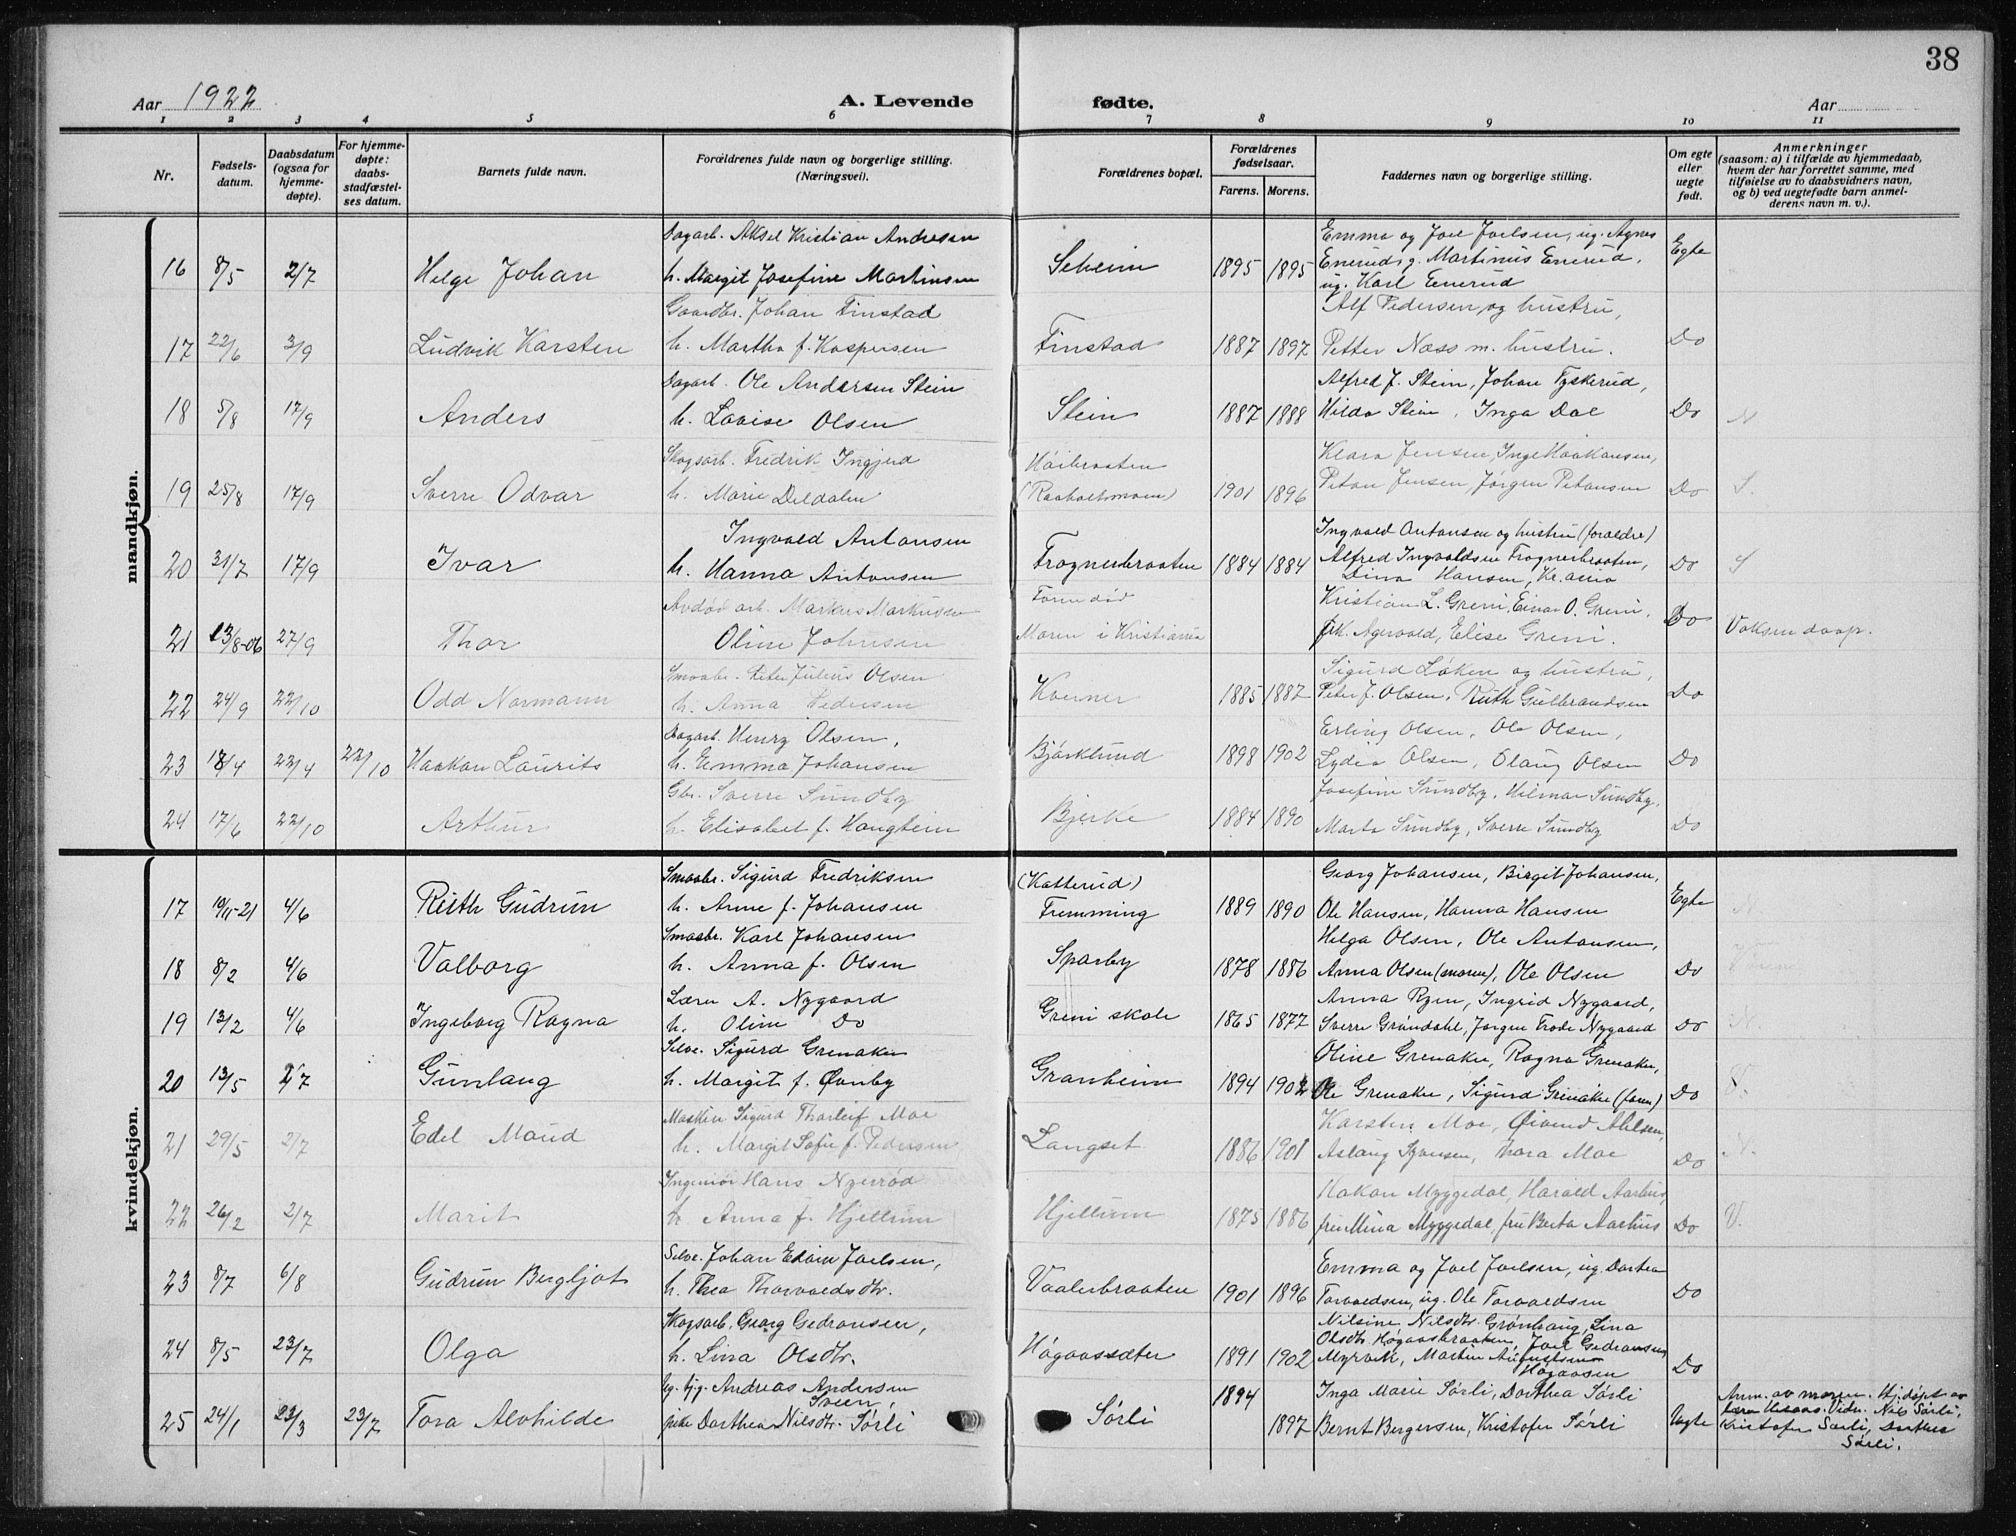 38
Aar 1922 A. Levende fødte. Aar
1 2 3 4 5 6 7 8 9 10 11
Nr. | Fødsels-datum. | Daabsdatum (ogsaa for hjemme-døpte). | For hjemme-døpte: daabs-stadfæstel-ses datum. | Barnets fulde navn. | Forældrenes fulde navn og borgerlige stilling. (Næringsvei). | Forældrenes bopæl. | Forældrenes fødselsaar. Farens. Morens. | Faddernes navn og borgerlige stilling. | Om egte eller uegte født. | Anmerkninger (saasom: a) i tilfælde av hjemmedaab, hvem der har forrettet samme, med tilføielse av to daabsvidners navn, og b) ved uegtefødte barn anmel-derens navn m. v.).
mandkjøn.
Dagarb. Aksel Kristian Andresen Emma og Joel Joelsen, ug. Agnes
16 8/5 2/7 Helge Johan h. Margit Josefine Martinsen 1895 1895 Enerud, g. Martinus Enerud, Egte
ug. Karl Enerud
Gaardbr. Johan Finstad Alf Pedersen og hustru,
17 22/6 3/9 Ludvik Karsten h. Martha f. Kaspersen Finstad 1887 1897 Petter Næss m. hustru. Do
Dagarb. Ole Andersen Stein Alfred J. Stein, Johan Tyskerud,
18 5/8 17/9 Anders h. Lovise Olsen Stein 1887 1888 Hilda Stein, Inga Dal Do N
Skogsarb. Fredrik Ingjerd Høibraaten Klara Jensen, Inge Haakansen,
19 25/8 17/9 Sverre Odvar h. Marie Deldalen (Raaholtmoen) 1901 1896 Jensen, Jørgen Do S.
Ingvald Antonsen Ingvald Antonsen og hustru (foreldre)
20 31/7 17/9 Ivar h. Hanna Antonsen Frognerbraaten 1884 1884 Alfred Ingvaldsen Frognerbraaten, Do S
Dina Hansen, Kr.ania
Avdød arb. Markus Markussen Faren død Kristian L. Greni, Einar O. Greni,
21 13/8-06 27/9 Thor Oline Johnsen Moren i Kristiania frk. Agervold, Elise Greni. Do Voksen daap.
Smaabr. Peter Julius Olsen Sigurd Løken og hustru,
22 24/9 22/10 Odd Normann h. Anna Pedersen Kverner 1885 1887 Peter J. Olsen, Ruth Gulbrandsen Do
Dagarb. Henry Olsen, Erling Olsen, Ole Olsen,
23 18/4 23/4 22/10 Haakon Laurits h. Emma Johansen Bjørklund 1898 1902 Lydia Olsen, Olaug Olsen Do
Gbr. Sverre Sundby Josefine Sundby, Hilmar Sundby,
24 17/6 22/10 Arthur h. Elisabet f. Haugheim Bjerke 1884 1890 Marta Sundby, Sverre Sundby Do
kvindekjøn.
Smaabr. Sigurd Fredriksen (Katterud) Georg Johansen, Birgit Johansen,
17 10/11-21 4/6 Ruth Gudrun h. Anne f. Johansen Fremming 1889 1890 Ole Hansen, Hanna Hansen Egte N
Smaabr. Karl Johansen Helga Olsen, Ole Antonsen,
18 8/2 4/6 Valborg h. Anna f. Olsen Sparby 1878 1886 Anna Olsen (moren), Ole Olsen Do
Lærer A. Nygaard Anna Ryen, Ingrid Nygaard,
19 13/2 4/6 Ingeborg Ragna h. Oline Do Greni skole 1865 1877 Sverre Grøndahl, Jørgen Frode Nygaard Do N.
Selve. Sigurd Grenaker Oline Grenaker, Ragna Grenaker,
20 13/5 2/7 Gunlaug h. Margit f. Øvnby Granheim 1894 1902 Ole Grenaker, Sigurd Grenaker (faren) Do V.
Maskin Sigurd Thorleif Moe Karsten Moe, Øivind Ahlsen,
21 29/5 2/7 Edel Maud h. Margit Sofie f. Pedersen Langset 1886 1901 Aslaug Syversen, Thora Moe Do N.
Ingeniør Hans Nyerrød Hakon Myggedal, Harald Aarhus,
22 26/2 2/7 Marit h. Anna f. Hjellum Hjellum 1875 1886 fru Mina Myggedal, fru Berta Aarhus Do V.
Selve. Johan Edvin Joelsen, Emma og Joel Joelsen, ug. Dortea
23 8/7 6/8 Gudrun Bergljot h. Thea Thorvaldsdtr. Vaalerbraaten 1901 1896 Torvaldsen, ug. Ole Torvaldsen Do
Skogsarb. Georg Gedeonsen, Nilsine Nilsdtr. Grønhaug, Lina
Olsdtr. Høgaasbraaten, Joel Gedeonsen
24 8/5 23/7 Olga h. Lina Olsdtr. Høgaassæter 1891 1902 Myrvik, Martin Augustsen Do
Høgaasen
Andreas Andersen 1894 Inga Marie Sørli, Dorthea Sørli Anm. av moren. Hj.døpt av
Sveen,
25 24/1 23/3 23/7 Tora Alvhilde pike Dorthea Nilsdtr. Sørli Sørli 1897 Bernt Bergersen, Kristofer Sørli Uegte Vidn. Nils Sørli,
Kristofer Sørli, Dorthea
Sørli.